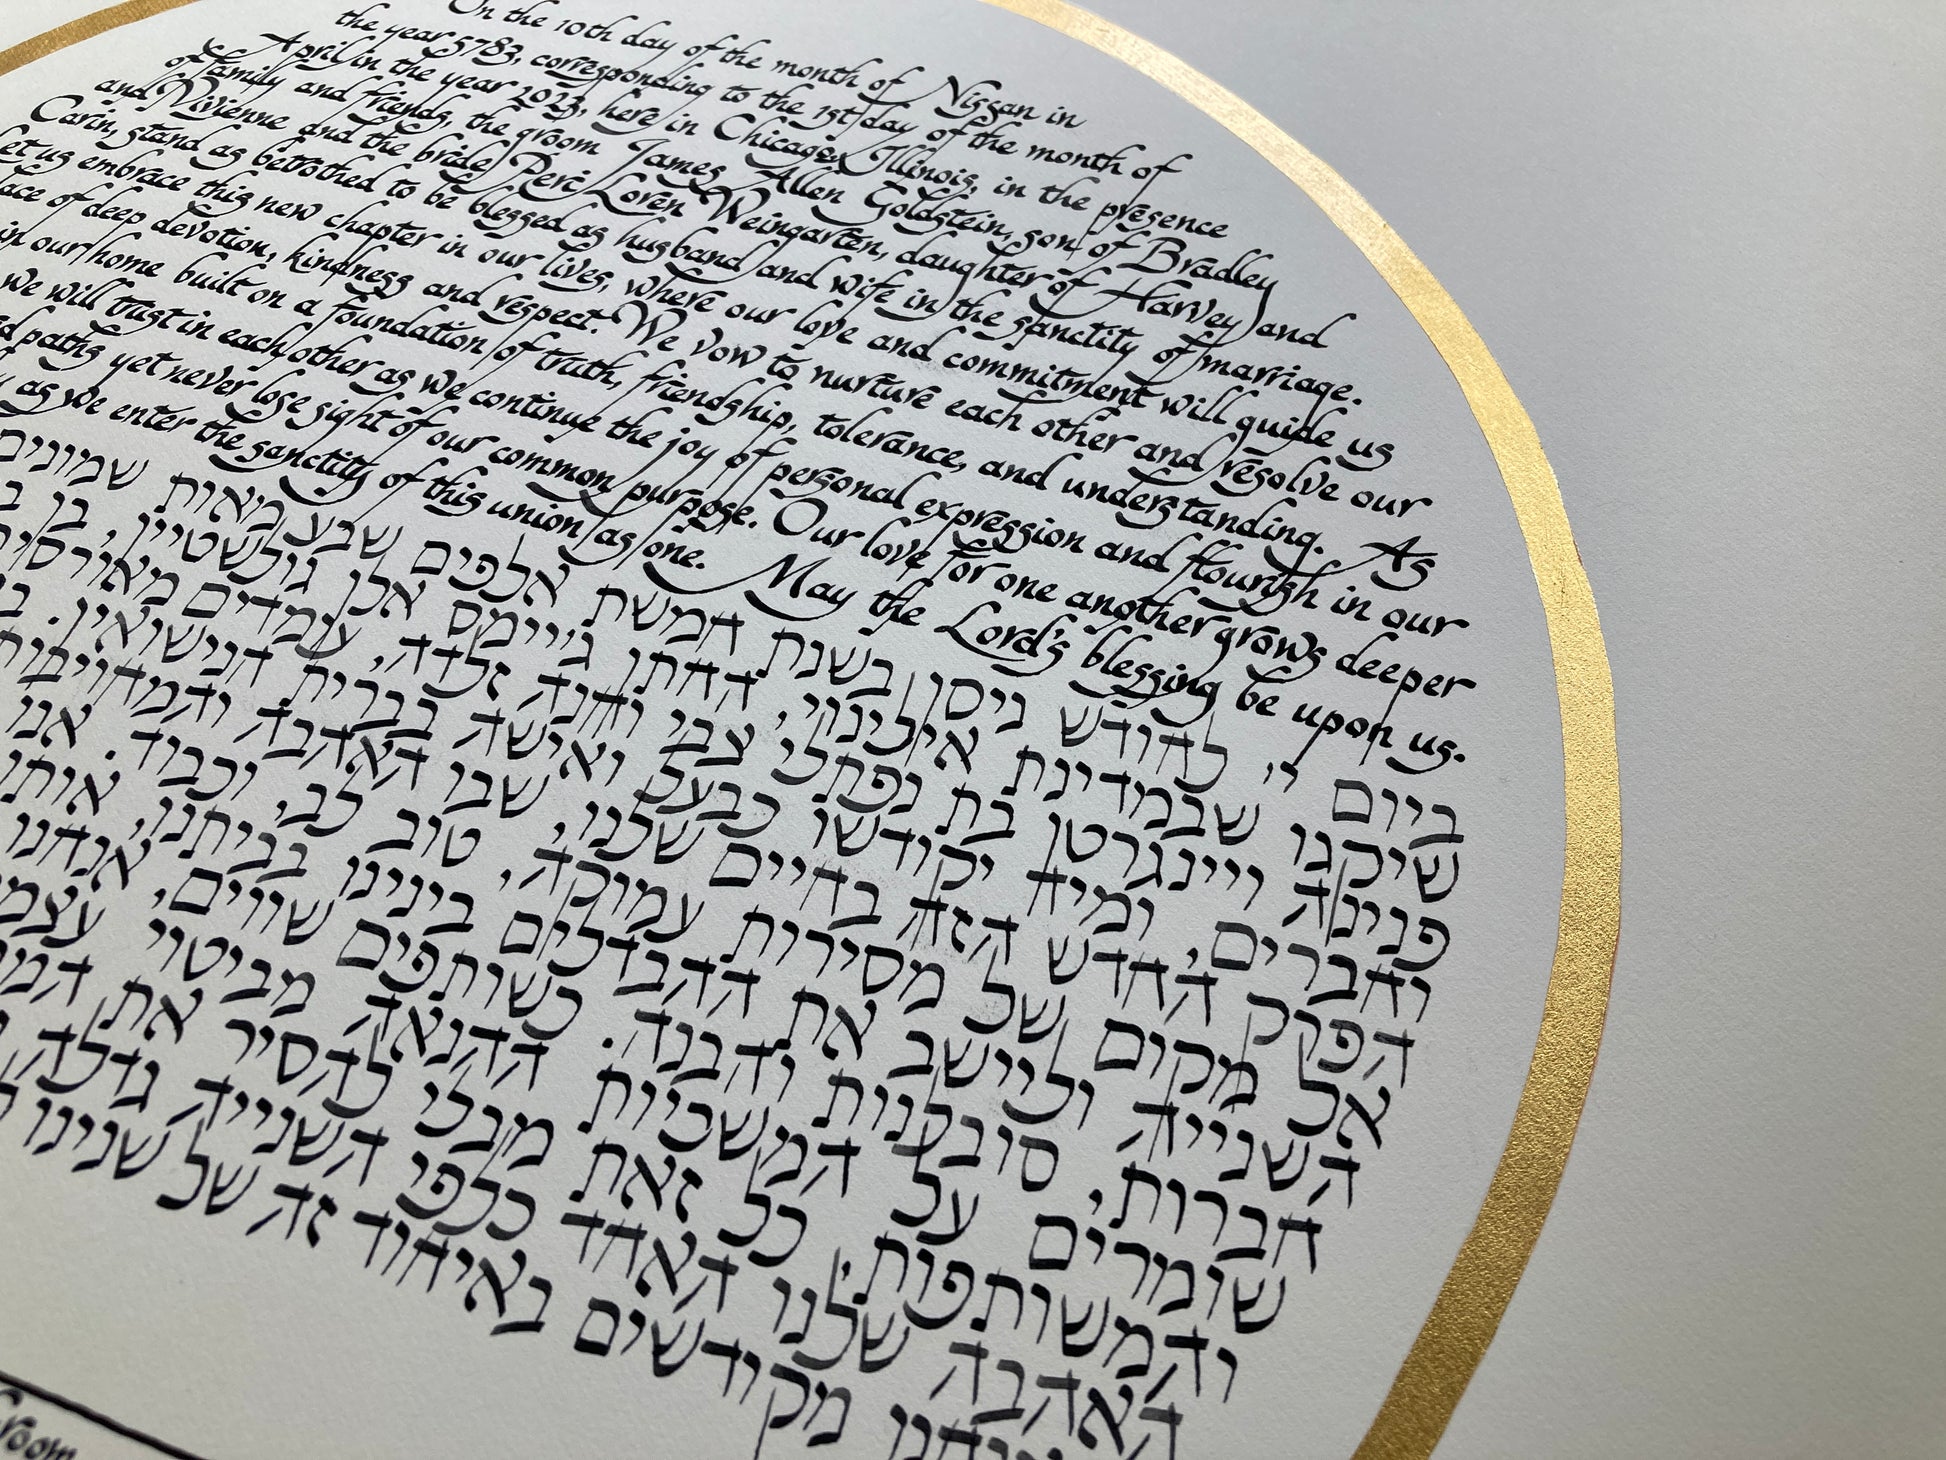 On the 10th day of the month of Nissan in
the year 5783, corresponding to the 1st day of the month of
April in the year 2023, here in Chicago, Illinois, in the presence
of family and friends, the groom James Allen Goldstein, son of Bradley
and Vivienne and the bride Peri Loren Weingarten, daughter of Harvey and
Carin, stand as betrothed to be blessed as husband and wife in the sanctity of marriage.
let us embrace this new chapter in our lives, where our love and commitment will guide us
of deep devotion, kindness and respect. We vow to nurture each other and resolve our
in our home built on a foundation of truth, friendship, tolerance, and understanding. As
we will trust in each other as we continue the joy of personal expression and flourish in our
paths yet never lose sight of our common purpose. Our love for one another grows deeper
as we enter the sanctity of this union as one. May the Lord's blessing be upon us.
ביום י' לחודש ניסן בשנת חמשת אלפים שבע מאות שמונים
שיקגו שבמדינת אילינוי, החתן ג'יימס אלן גולשטיין, בן
פנינה ויינגרטן בת נפתלי צבי וחנה זלדה, עומדים מאורסים
וחברים, ומיד יקודשו כבעל ואישה בברית הנישואין.
הפרק החדש הזה בחיים שלנו, שבו האהבה והמחויבות
אל מקום של מסירות עמוקה, טוב לב, וכבוד. אנו
השנייה וליישב את ההבדלים בינינו בביתנו, אותו
חברות, סובלנות והבנה. כשותפים שווים, אנחנו
שומרים על המשכיות ההנאה מביטוי
והמשותפות, כל זאת מבלי להסיר את
האהבה שלנו האחד כלפי השנייה גדלה
אנחנו מקודשים באיחוד זה של שנינו